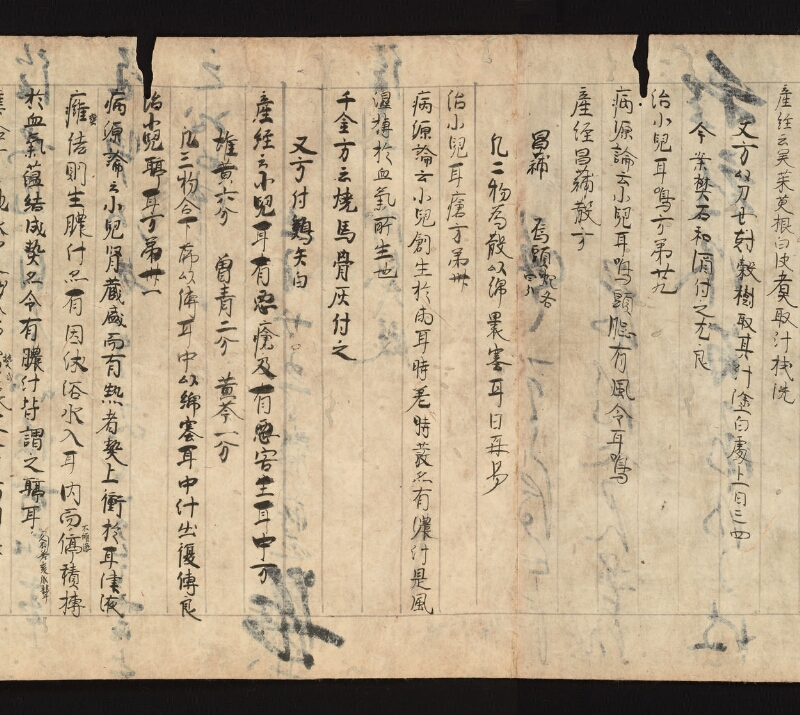 産経云呉茱萸根白皮煮取汁拭洗
又方以刀刮穀樹取其汁塗白處上日三四
今案礬石和酒付之尤良
治小兒耳鳴方第廿九
病源論云小兒耳鳴頭腦有風令耳鳴
産経昌蒲散方
昌蒲 烏頭
凡二物為散以綿裹塞耳日再易
治小兒耳瘡方第卅
病源論云小兒創生於兩耳時差時發亦有濃汁是風
湿搏於血氣所生也
千金方云燒馬骨灰付之
又方付鷄矢白
産経云小兒耳有悪瘡及有悪害生耳中方
雄黄六分 曽青二分 黄芩一分
凡三物合下篩以傅耳中以綿塞耳中汁出復傅良
治小兒聤耳方第卅一
病源論云小兒腎蔵盛而有熱者熱上衝於耳津液
癰結則生膿汁亦有因沐浴水入耳内而停積搏
於血氣蘊結成熱亦令有膿汁皆謂之聤耳